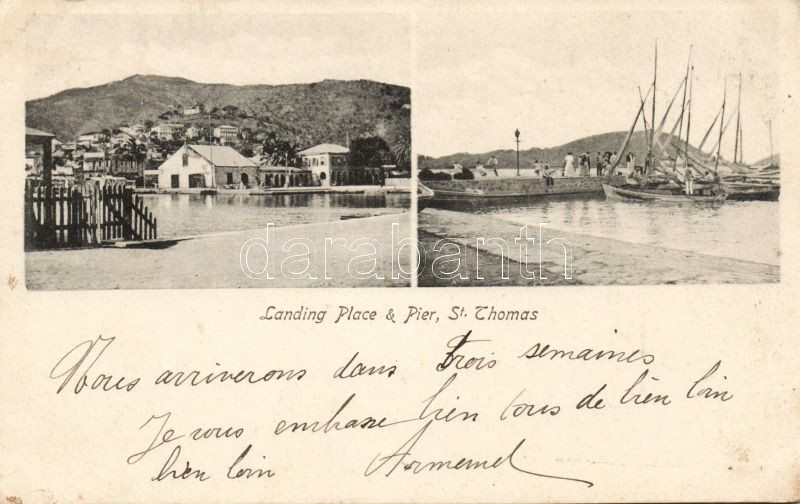 darabanth
Landing Place & Pier, St. Thomas
Nous arriverons dans Trois semaines
Je vous embrasse bien tous de bien loin
bien loin Armemel